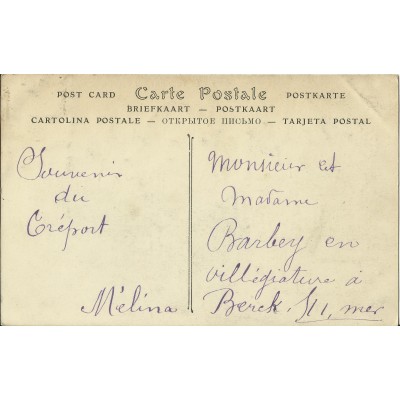 POST CARD Carte Postale POSTKARTE
BRIEFKAART — POSTKAART
CARTOLINA POSTALE — ОТКРЫТОЕ ПИСЬМО — TARJETA POSTAL
Souvenir
du
Tréport
Mélina
Monsieur et
Madame
Barbey en
villégiature à
Berck. S/ mer